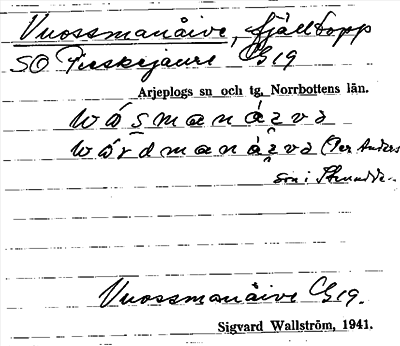 Vuossmanåive, fjälltopp
SO Pieskejaure G19
Arjeplogs sn och tg, Norrbottens län.
wásmanáiva
wárdmanáiva (Per Anders-
son i
Vuossmanåive G19.
Sigvard Wallström, 1941.